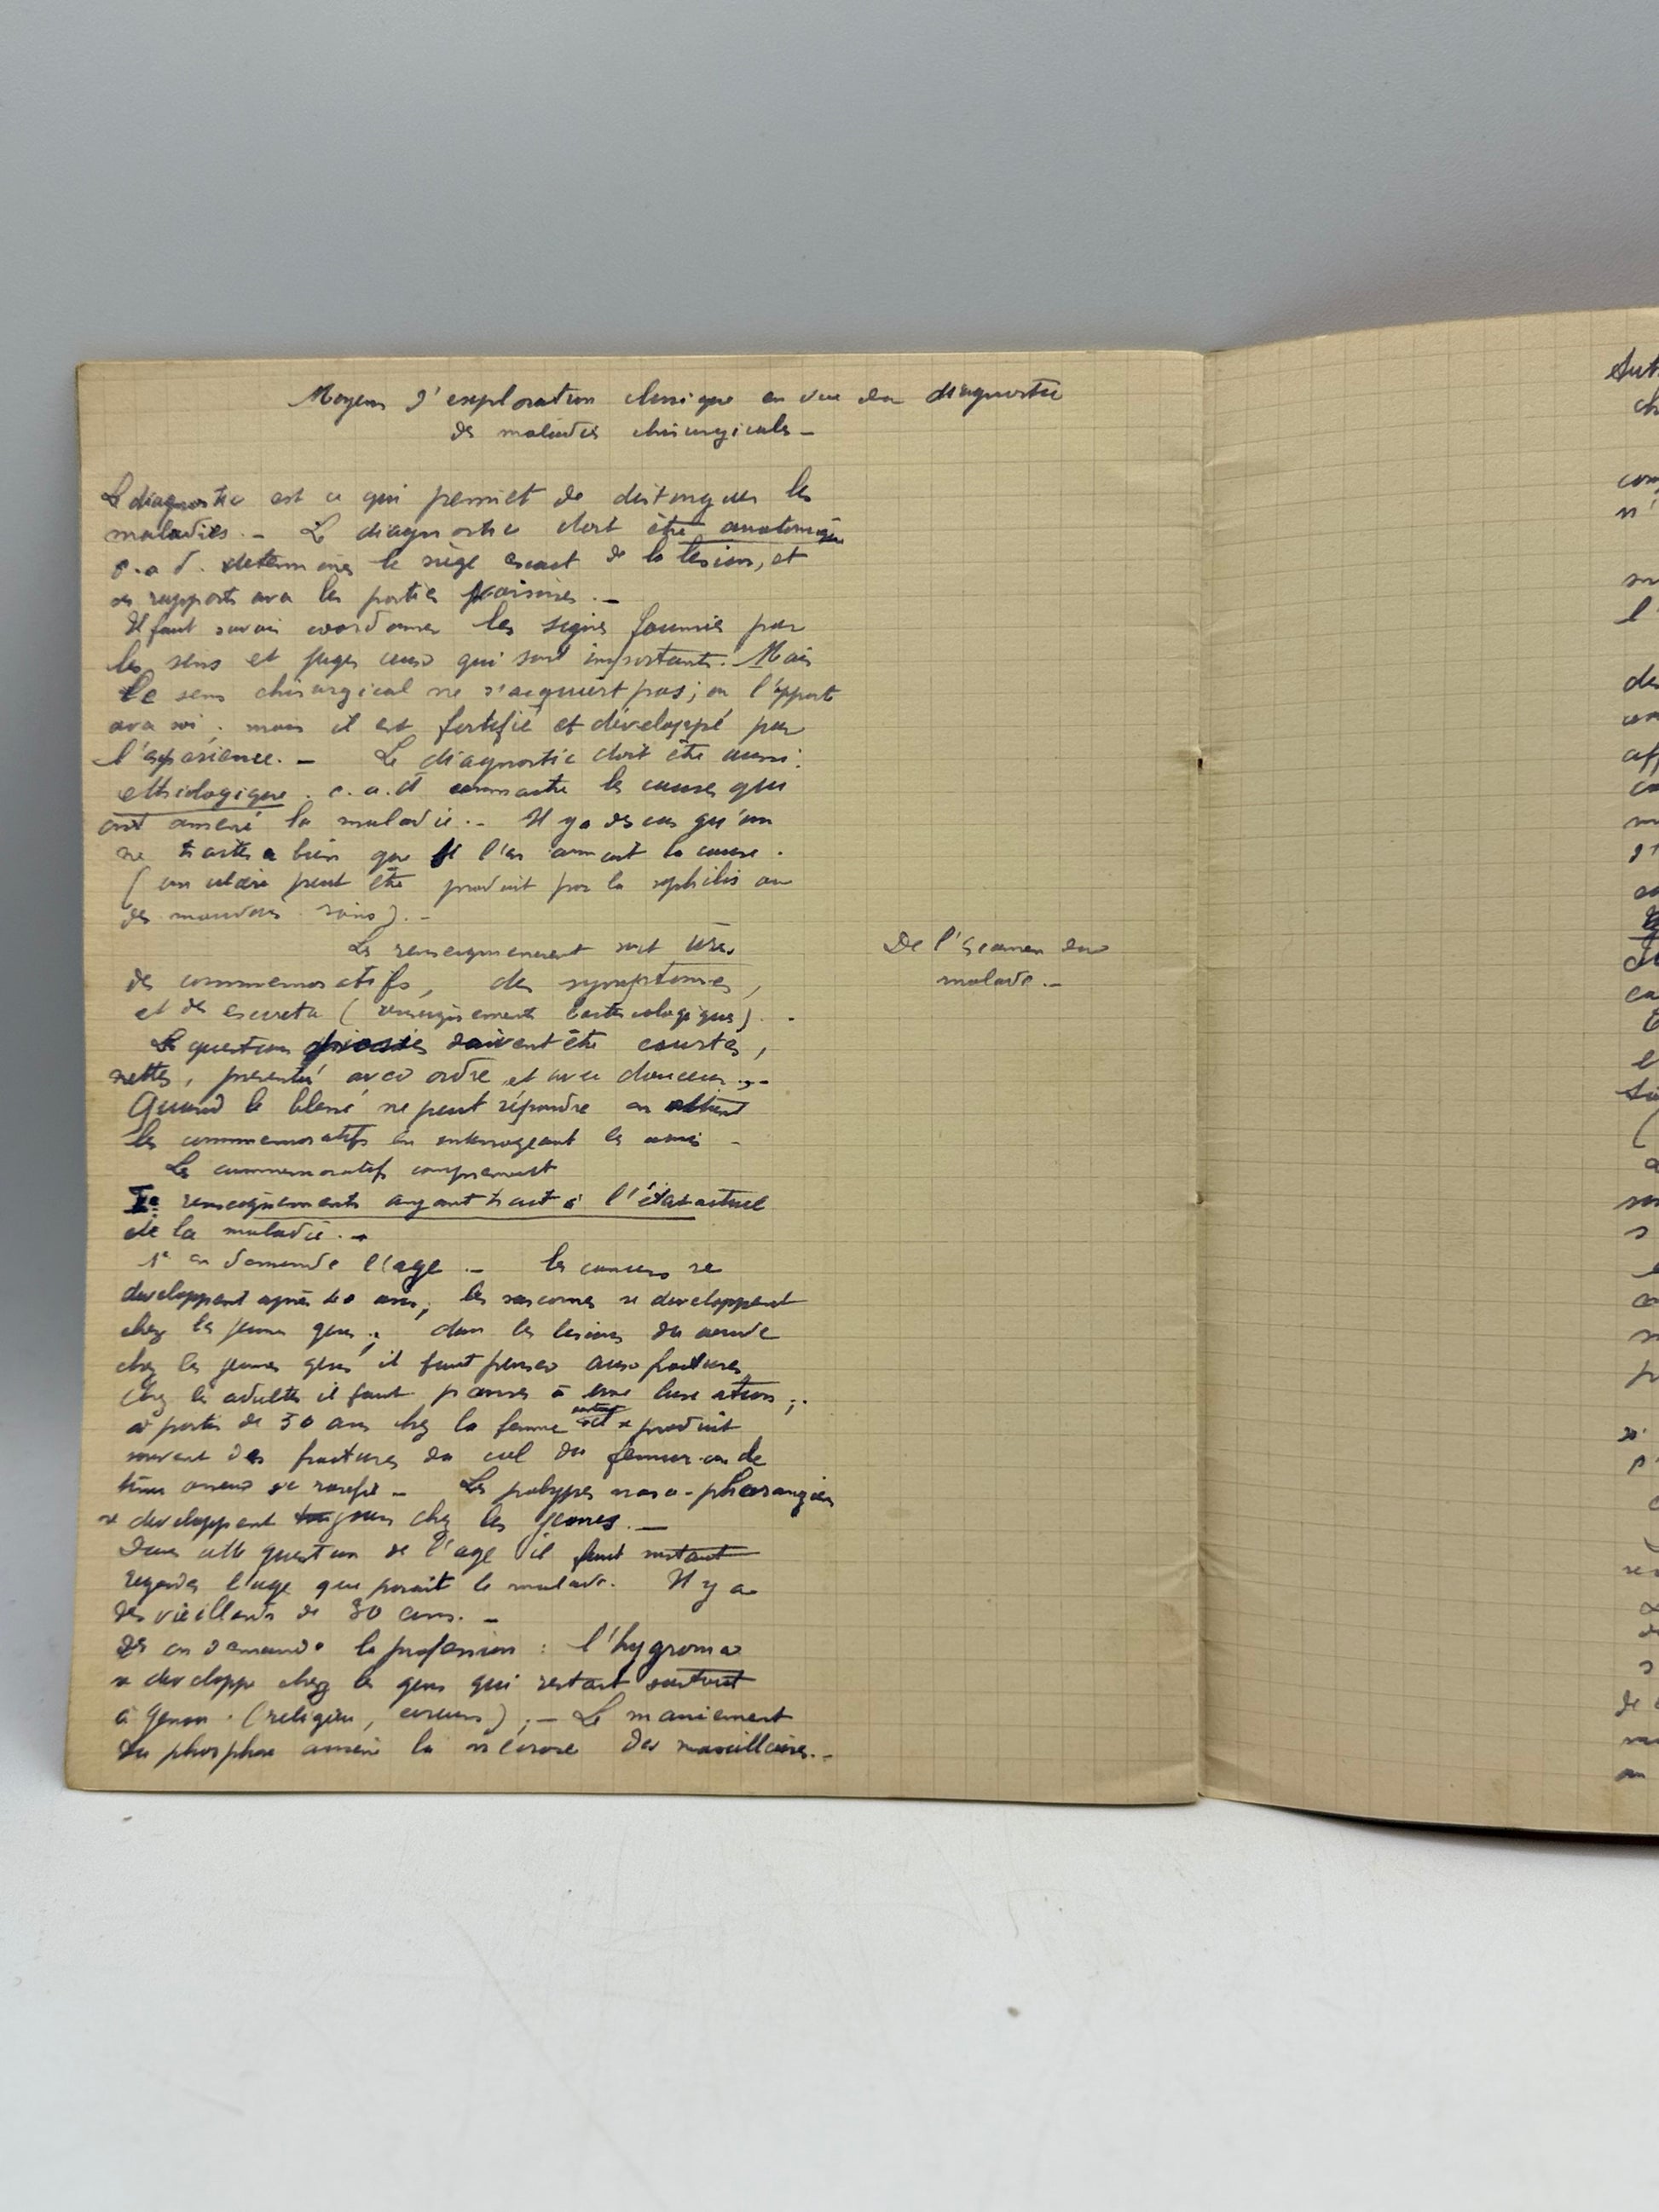 Moyens d'exploration clinique en vue du diagnostic
des maladies chirurgicales -
Le diagnostic est ce qui permet de distinguer les
maladies. - Le diagnostic doit être anatomique
c.a.d. determiner le siège exact de la lesion, et
ses rapports avec les parties voisines. -
Il faut savoir coordonner les signes fournis par
les sens et juger ceux qui sont importants. Mais
le sens chirurgical ne s'acquiert pas; on l'apporte
avec soi; mais il est fortifié et développé par
l'experience. - Le diagnostic doit être aussi:
ethiologique. c.a.d connaitre les causes qui
ont amené la maladie. - Il y a des cas qu'on
ne traitera bien que si l'on connait la cause.
(un ulcère peut être produit par la syphilis ou
des mauvais soins). -
Les renseignements sont tirés
des commemoratifs, des symptomes,
et des excreta (renseignements bacteriologiques). -
Les questions doivent être courtes,
nettes, presentés avec ordre et avec douceur. -
Quand le blessé ne peut répondre on obtient
les commemoratifs en interrogeant les amis -
Les commemoratifs comprennent
I° renseignements ayant trait à l'état actuel
de la maladie. -
1° on demande l'age - les cancers se
developpent après 40 ans; les sarcomes se developpent
chez les jeunes gens; dans les lesions du coude
chez les jeunes gens il faut penser aux fractures
chez les adultes il faut penser à une luxation;
à partir de 50 ans chez la femme surtout il se produit
souvent des fractures du col du femur car le
tissu osseux se rarefie - Les polypes naso-pharangiens
se developpent toujours chez les jeunes. -
Dans cette question de l'age il faut surtout
regarder l'age que parait le malade. Il y a
des vieillards de 30 ans. -
2° on demande la profession : l'hygroma
se developpe chez les gens qui restent surtout
à genoux (religieux, cireurs); - Le maniement
du phosphore amène la nécrose des maxillaires. -
De l'examen du
malade. -